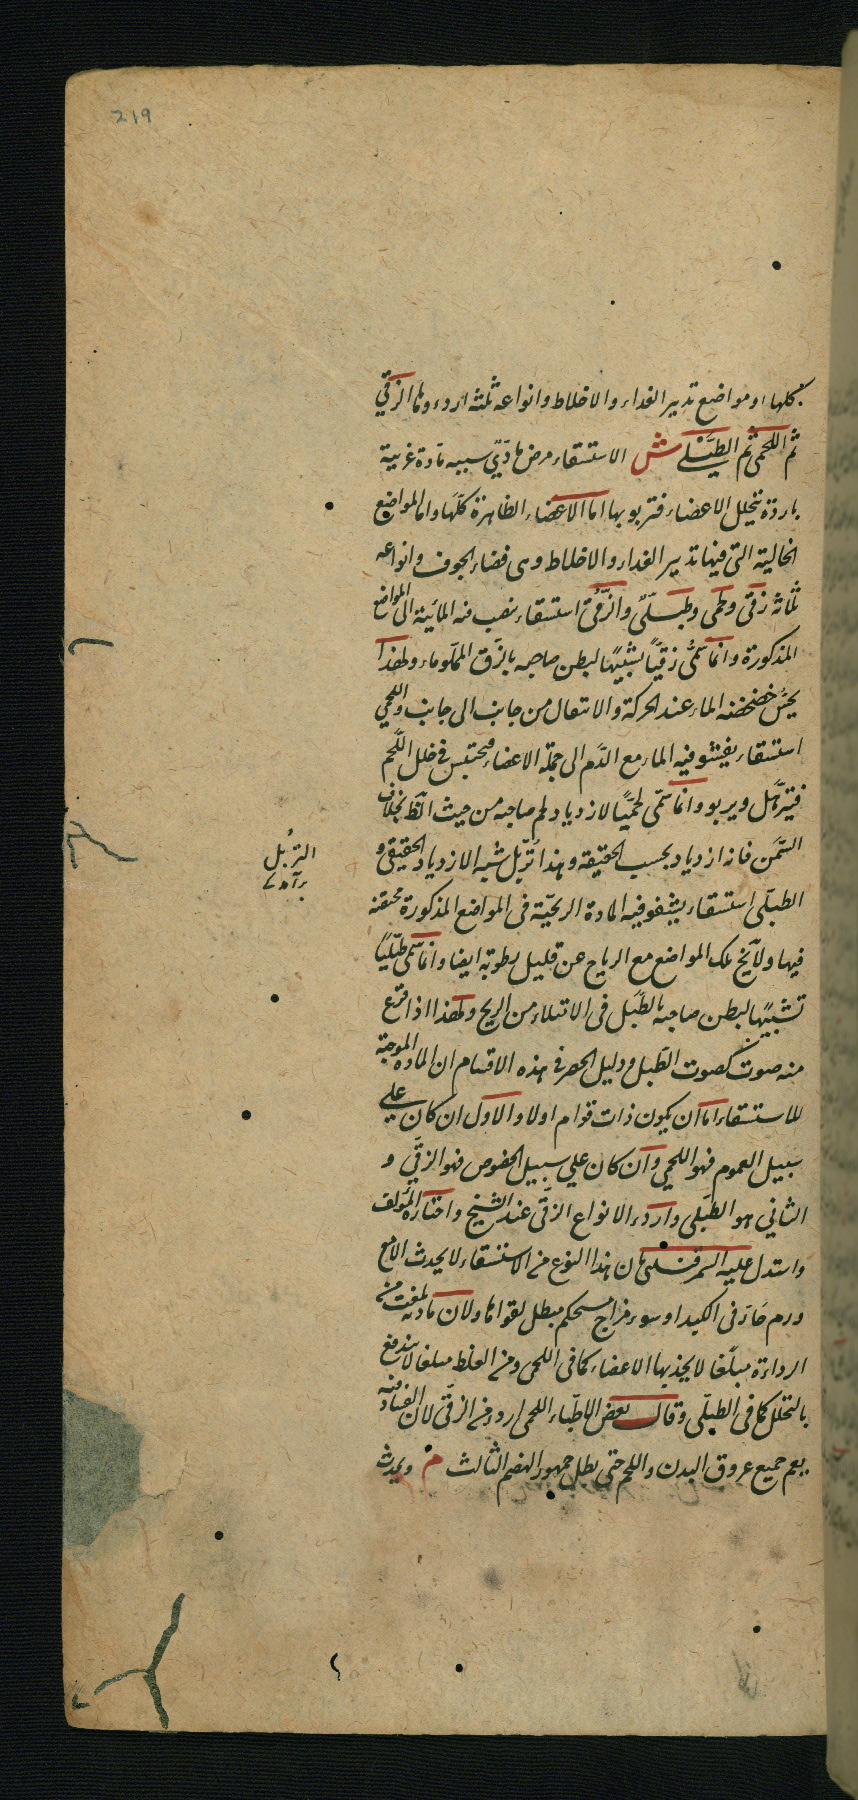 219
كلها او مواضع تدبير الغداء والاخلاط وانواعه ثلثة اردءوها الزقي
ثم اللحمى ثم الطبلي ش الاستسقاء مرض مادّيّ سببه مادة غريبة
باردة تتخلل الاعضاء فتربو بها اما الاعضاء الظاهرة كلّها واما المواضع
الخالية التى فيها تدبير الغداء والاخلاط وهى فضاء الجوف وانواعه
ثلاثة زقى ولحمى وطبلىّ والزّقىّ استسقاء تنصب فيه المائية الى المواضع
المذكورة وانما سمّى زقيّاً تشبيهًا لبطن صاحبه بالزّق المملو ماء ولهذا
يحسّ خضخضة الماء عند الحركة والانتقال من جانب الى جانب واللحمي
استسقاء يفشو فيه الماء مع الدّم الى جملة الاعضاء فيحتبس فى خلل اللّحم
فيترهّل ويربو وانما سمّى لحميًّا لازدياد لحم صاحبه من حيث النظر بخلاف
السّمن فانه ازدياد بحسب الحقيقة وهذا تربّل شبه الازدياد الحقيقى و
التربُل
برآمدے
الطبلّى استسقاء يفشو فيه المادة الريحيّة فى المواضع المذكورة محتقنة
فيها ولا تخ تلك المواضع مع الرياح عن قليل رطوبة ايضا وانما سمى طبليًّا
تشبيهًا لبطن صاحبه بالطّبل فى الامتلاء من الريح ولهذا اذا قرع
منه صوت كصوت الطّبل ودليل الحصر فى هذه الاقسام ان المادة الموجبة
للاستسقاء اما ان يكون ذات قوام اولا والاول ان كان على
سبيل العموم فهو اللحمي وان كان علي سبيل الخصوص فهو الزقّي و
الثاني هو الطّبلى واردء الانواع الزقّى عند الشيخ واختاره المؤلف
واستدل عليه السمرقندى بان هذا النوع من الاستسقاء لا يحدث الا مع
ورم حارّ فى الكبد او سوء مزاج مستحكم مبطل لقواها ولان مادته بلغت من
الرداءة مبلغا لا يجذبها الاعضاء كما فى اللحمى ومن الغلظ مبلغا لا يندفع
بالتحلل كما فى الطبلّى وقال بعض الاطبّاء اللحمى اردء من الزقّى لان الفساد فيه
يعم جميع عروق البدن واللحم حتى بطل جمهور الهضم الثالث م ويحدث